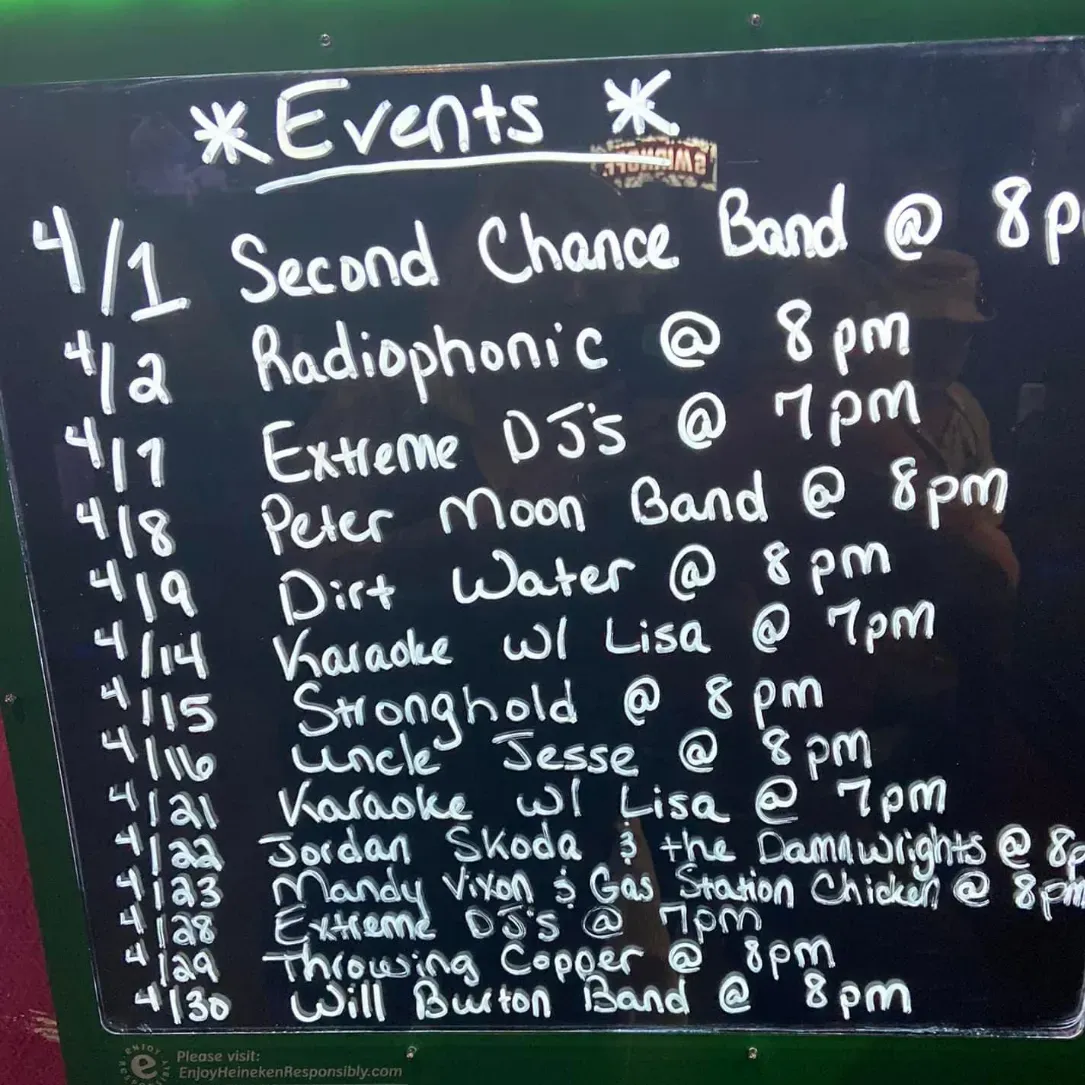 *Events*
4/1 Second Chance Band @ 8p
4/2 Radiophonic @ 8pm
4/7 Extreme DJ's @ 7pm
4/8 Peter Moon Band @ 8pm
4/9 Dirt Water @ 8pm
4/14 Karaoke w/ Lisa @ 7pm
4/15 Stronghold @ 8pm
4/16 Uncle Jesse @ 8pm
4/21 Karaoke w/ Lisa @ 7pm
4/22 Jordan Skoda & the Damnwrights @ 8p
4/23 Mandy Vixon & Gas Station Chicken @ 8pm
4/28 Extreme DJ's @ 7pm
4/29 Throwing Copper @ 8pm
4/30 Will Burton Band @ 8pm
Please visit:
EnjoyHeinekenResponsibly.com